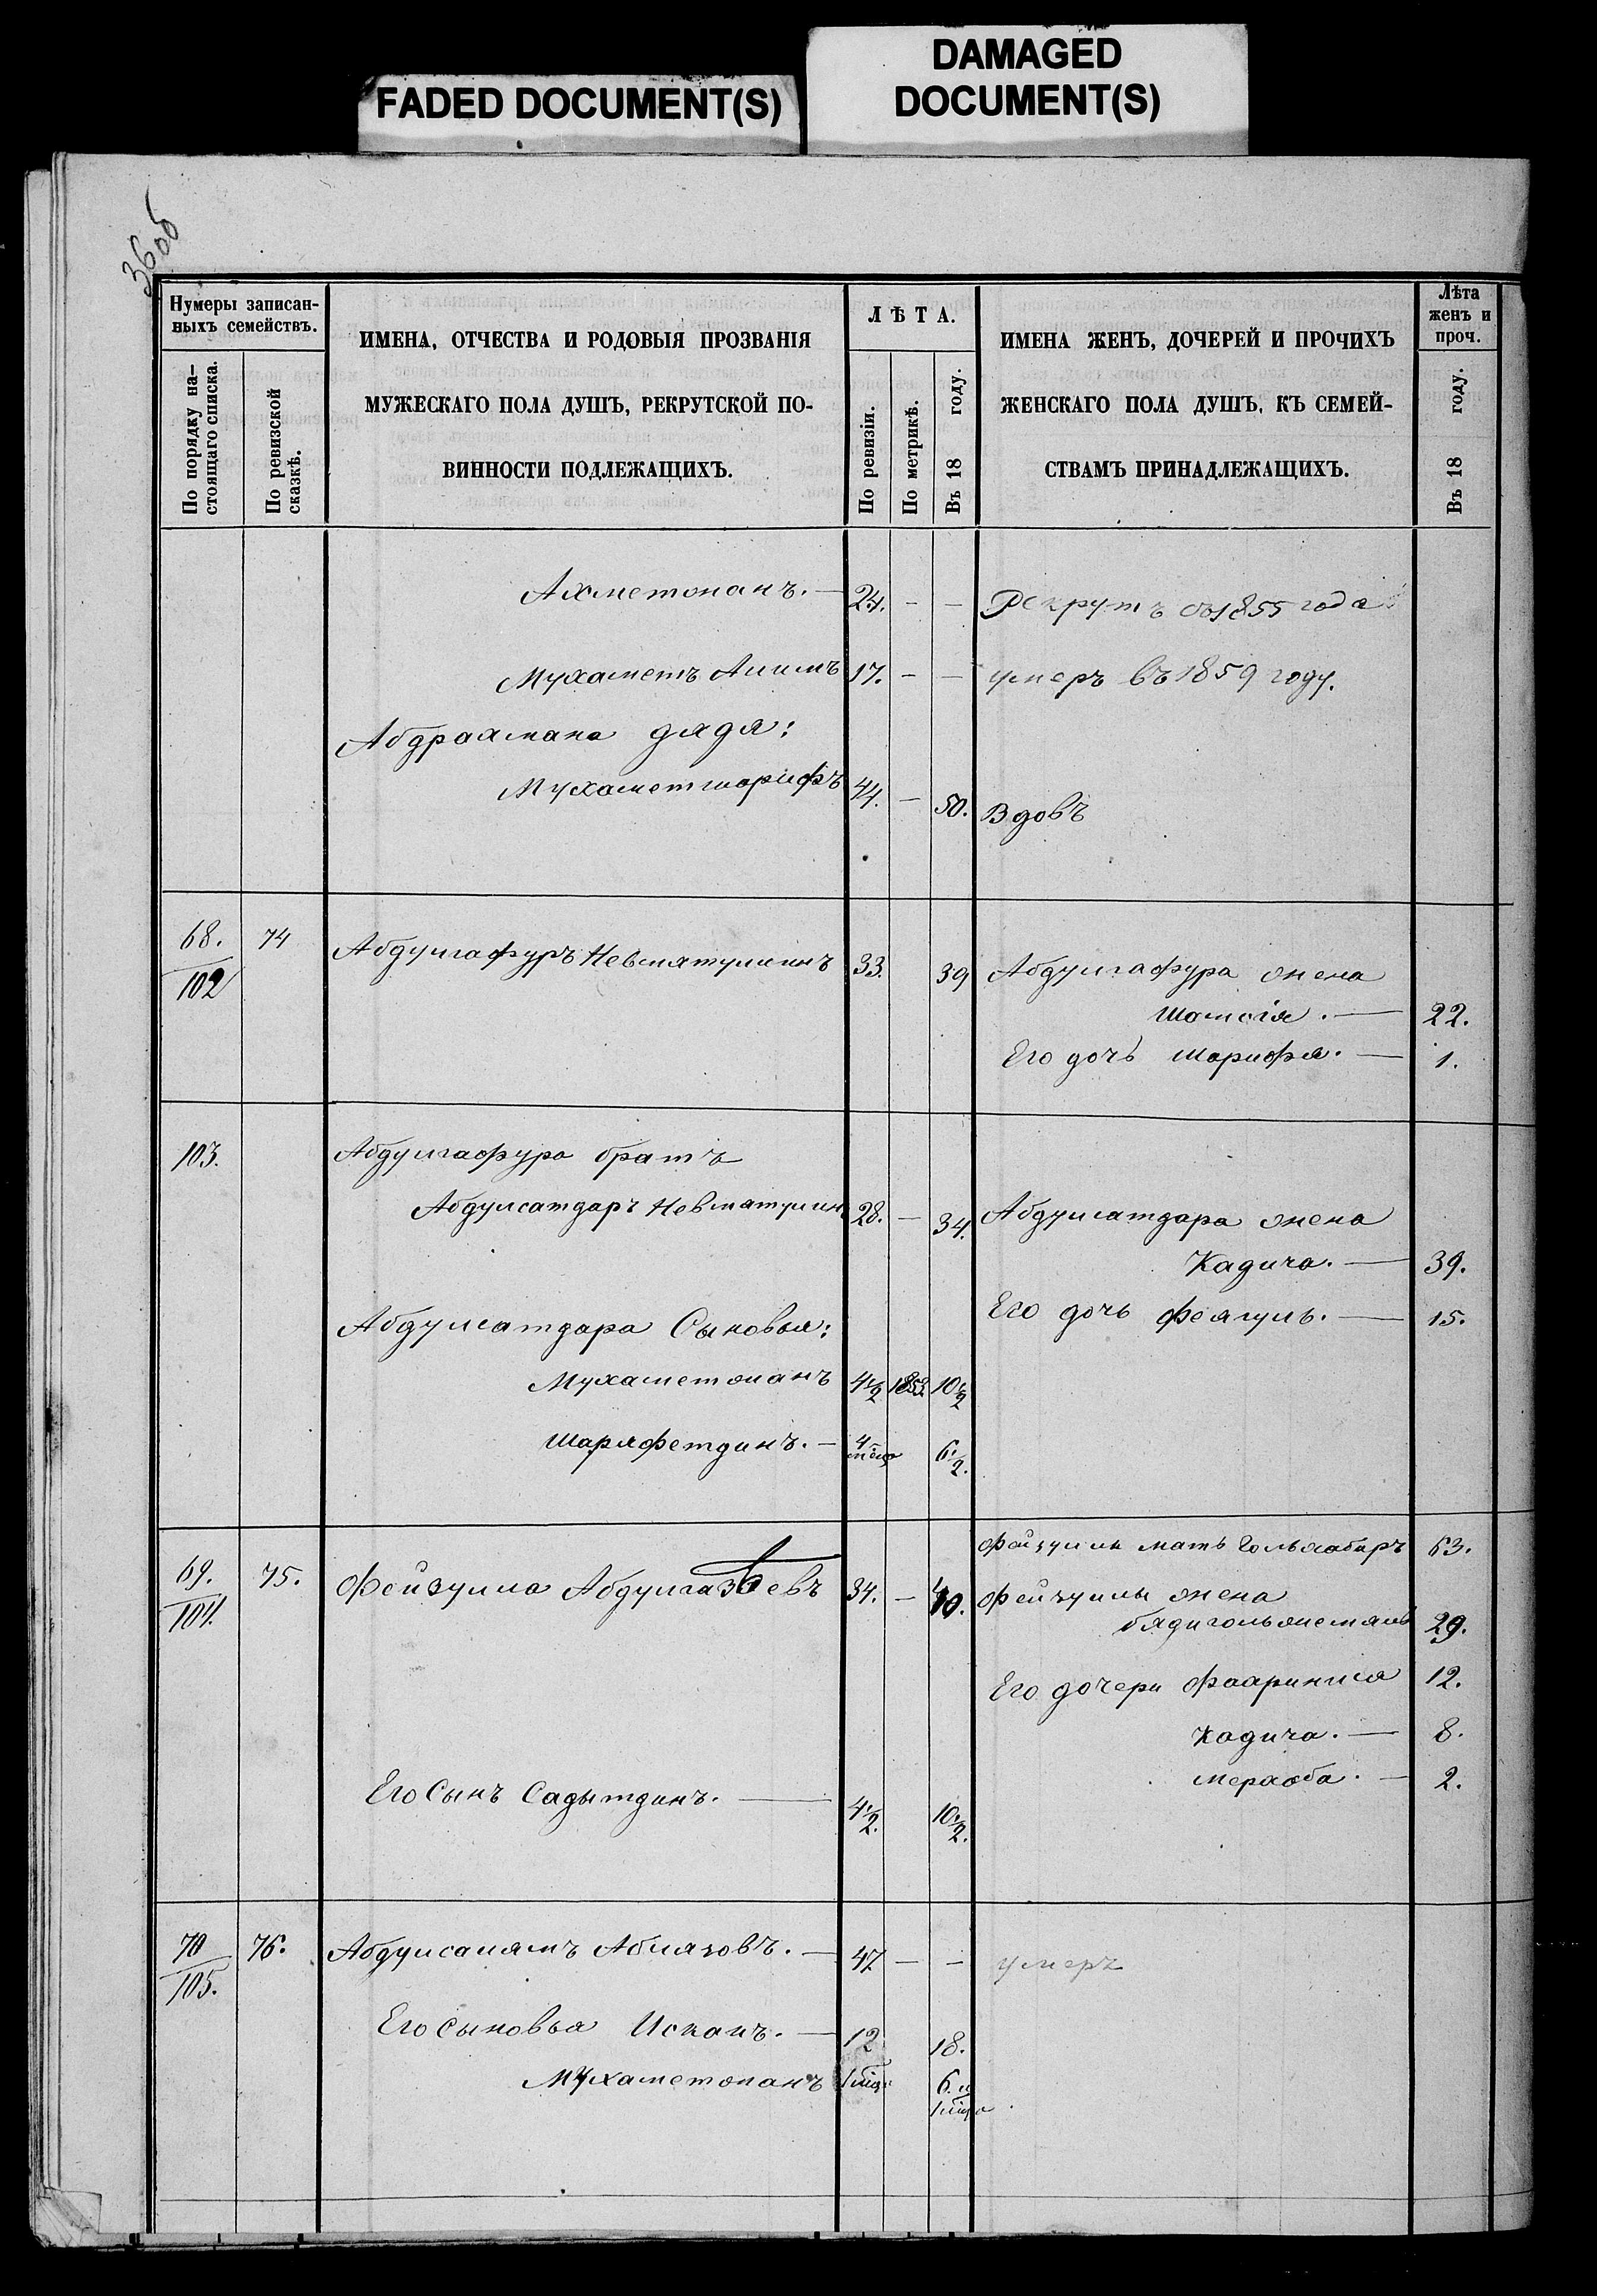 FADED DOCUMENT(S)
DAMAGED
DOCUMENT(S)
36об
Нумеры записан-
ныхъ семействъ.
По порядку на-
стоящаго списка.
По ревизской
сказкѣ.
ИМЕНА, ОТЧЕСТВА И РОДОВЫЯ ПРОЗВАНІЯ
МУЖЕСКАГО ПОЛА ДУШЪ, РЕКРУТСКОЙ ПО-
ВИННОСТИ ПОДЛЕЖАЩИХЪ.
ЛѢТА.
По ревизіи.
По метрикѣ.
Въ 18 году.
ИМЕНА ЖЕНЪ, ДОЧЕРЕЙ И ПРОЧИХЪ
ЖЕНСКАГО ПОЛА ДУШЪ, КЪ СЕМЕЙ-
СТВАМЪ ПРИНАДЛЕЖАЩИХЪ.
Лѣта
женъ и
проч.
Въ 18 году.
Ахметжанъ. — 24. — — Рекрутъ съ 1855 года
Мухаметъ 17. — — умеръ въ 1859 году.
Абдраамана дядя:
Мухаметшарифъ 44. — 50. Вдовъ
68. 74 Абдулгафуръ Невматуллинъ 33. 39 Абдулгафура жена
102
Шамсія. — 22.
Его дочь Шарифа. — 1.
103. Абдулгафура братъ
Абдулсатдаръ Невматулин 28. — 34. Абдулсатдара жена
Кадича. — 39.
Его дочь Феягуль. — 15.
Абдулсатдара Сыновья:
Мухаметжанъ 4 1/2 1853. 10 1/2
Шарафетдинъ. — 4 мѣсяц 6 1/2.
Фейзуллы мать 63.
69. 75. Фейзулла Абдулгазѣевъ 34. — 40. Фейзуллы жена
104.
29.
Его дочери 12.
Кадича. — 8.
Мерхаба. — 2.
Его Сынъ Садытдинъ. — 4 1/2. 10 1/2.
70 76. Абдулсалямъ Аблязовъ. — 47 — — умеръ
105.
Его сыновья Исканъ. — 12 18.
Мухаметжанъ 1 мѣся 6. и
1 мѣся